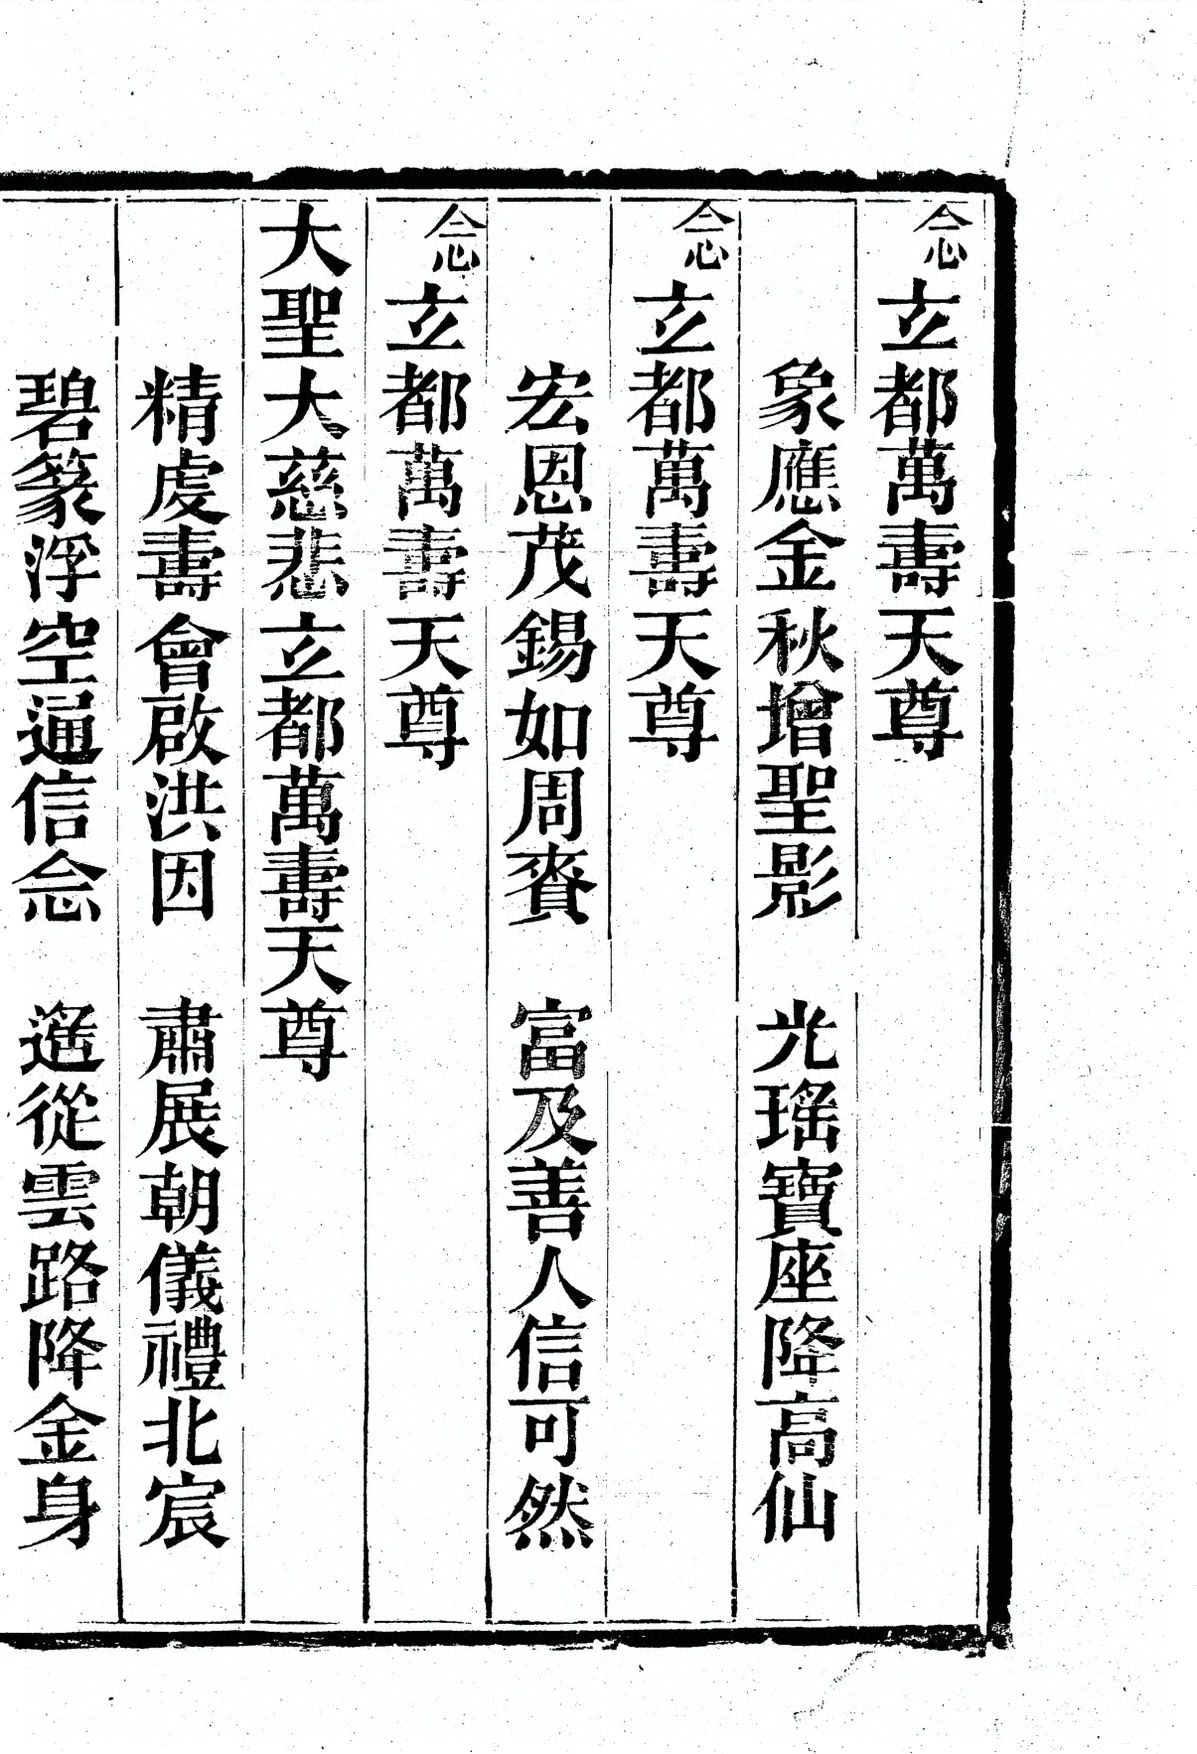 念立都萬壽天尊
象應金秋增聖影　光瑤寶座降高仙
念立都萬壽天尊
宏恩茂錫如周賚　富及善人信可然
念立都萬壽天尊
大聖大慈大悲立都萬壽天尊
精虔壽會啟洪因　肅展朝儀禮北宸
碧篆浮空通信念　遙從雲路降金身